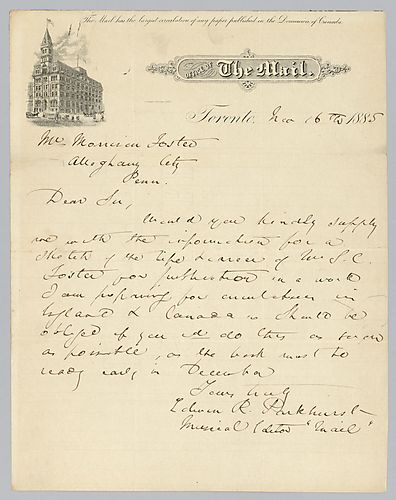 The Mail has the largest circulation of any paper published in the Dominion of Canada.
OFFICE OF The Mail.
Toronto, Nov 16th 1885
Mr Morrison Foster
Alleghany City
Penn.
Dear Sir,
Would you kindly supply
me with the information for a
sketch of the life & career of Mr S. C.
Foster for publication in a work
I am preparing for circulation in
England & Canada. I should be
obliged if you wd do this as soon
as possible, as the book must be
ready early in December
Yours truly
Edwin R. Parkhurst
Musical Editor "Mail"